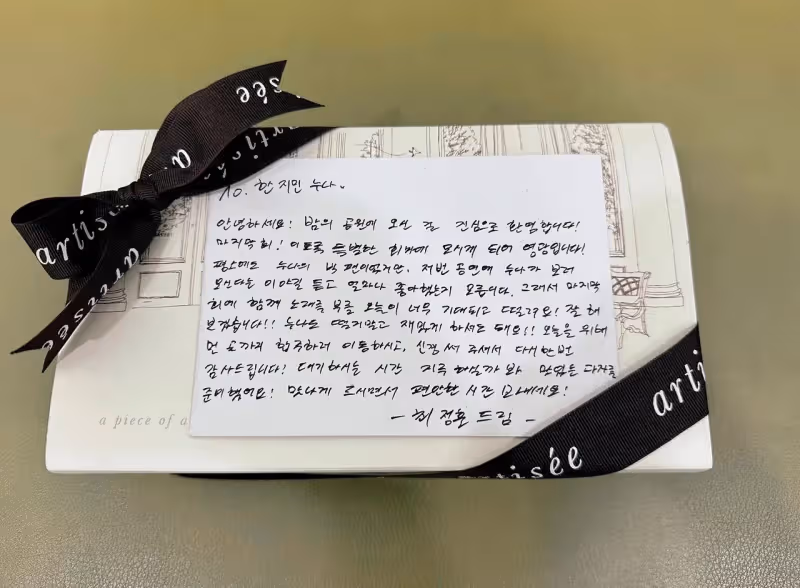 To. 한 지민 누나.
안녕하세요! 밤의 공원에 오신 걸 진심으로 환영합니다!
마지막회! 이토록 특별한 회차에 모시게 되어 영광입니다!
평소에도 누나의 빅 팬이었지만, 저번 공연에 누나가 보러
오신다는 이야길 듣고 얼마나 좋아했는지 모릅니다. 그래서 마지막
회에 함께 노래를 부를 오늘이 너무 기대되고 떨려요! 잘 해
보겠습니다!! 누나도 떨지말고 재밌게 하셔도 돼요!! 오늘을 위해
먼 곳까지 합주하러 이동하시고, 신경 써 주셔서 다시 한번
감사드립니다! 대기하시는 시간 지루 하실까 봐 맛있는 다과를
준비했어요! 맛나게 드시면서 편안한 시간 보내세요!
- 최 정훈 드림 -
a piece of a
artisée
artisée
artisée
artisée